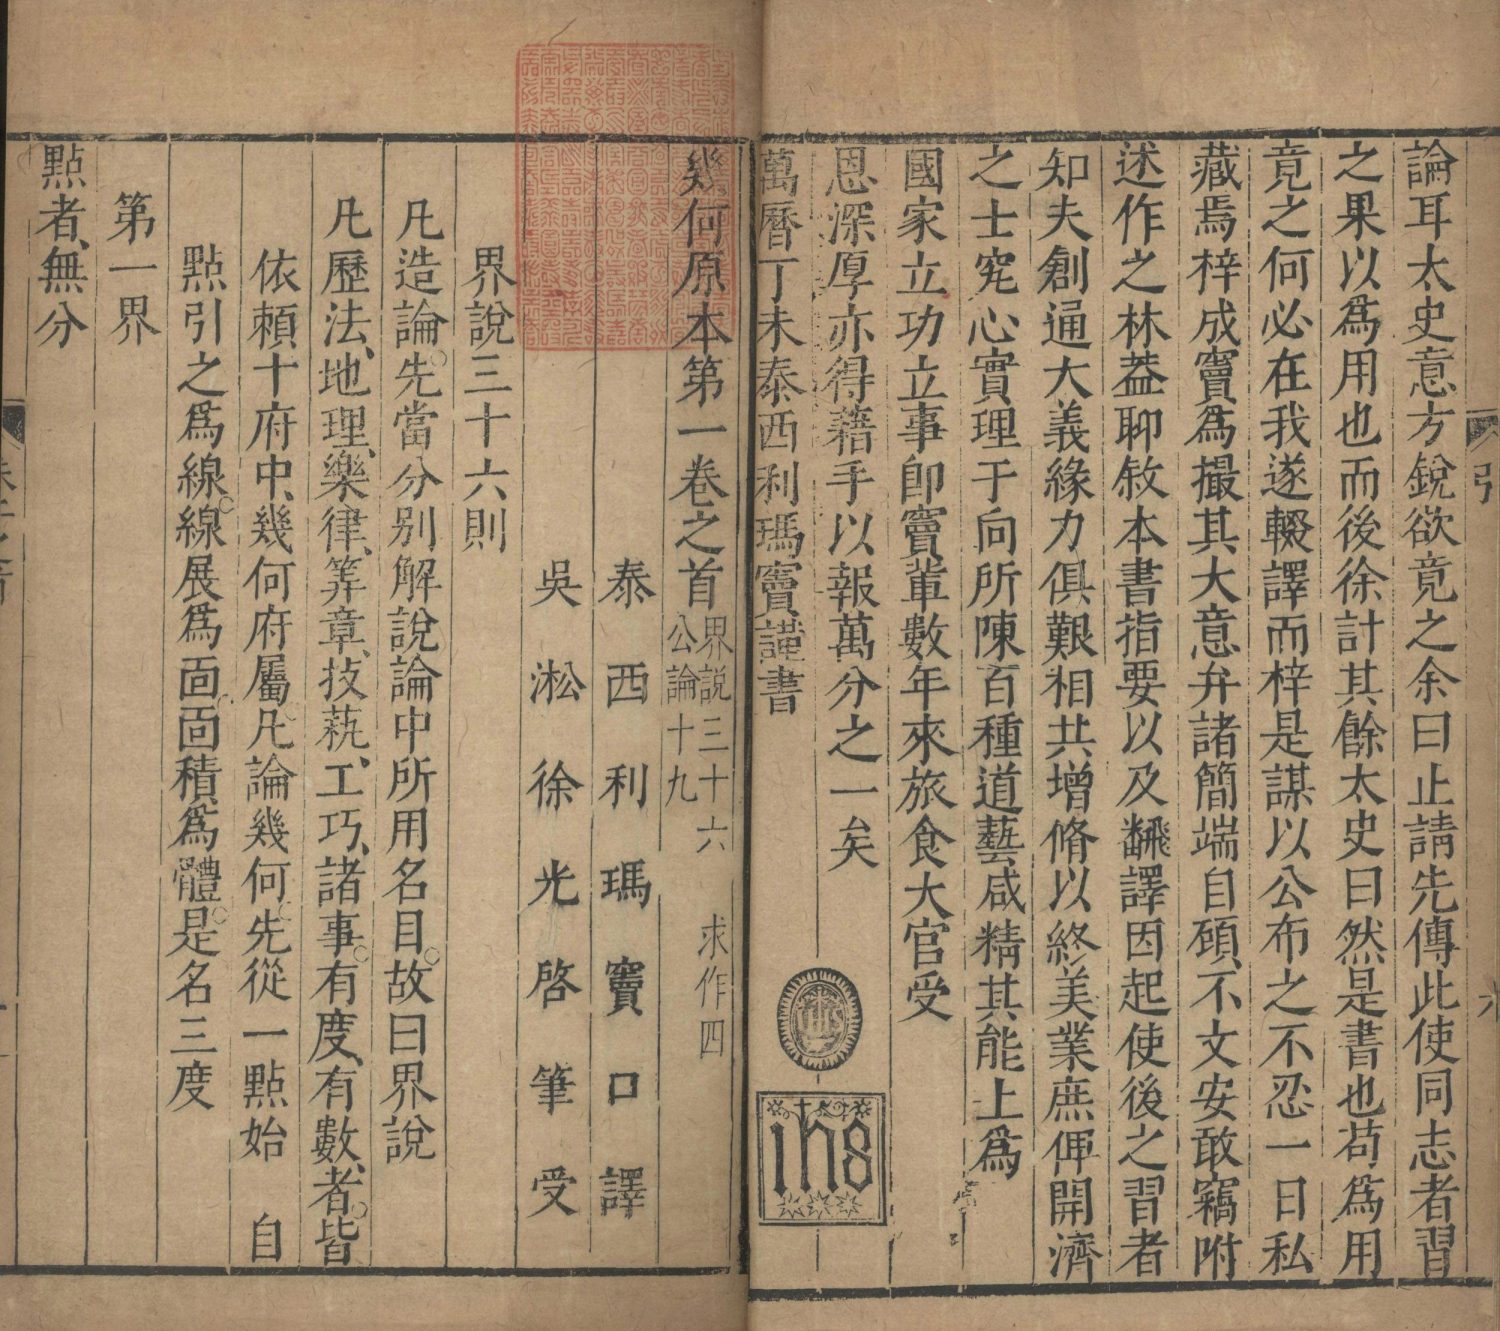 論耳太史意方銳欲竟之余曰止請先傳此使同志者習
之果以爲用也而後徐計其餘太史曰然是書也苟爲用
竟之何必在我遂輟譯而梓是謀以公布之不忍一日私
藏焉梓成竇爲撮其大意弁諸簡端自顧不文安敢竊附
述作之林葢聊敘本書指要以及飜譯因起使後之習者
知夫創通大義緣力俱艱相共增脩以終美業庶俾開濟
之士究心實理于向所陳百種道藝咸精其能上爲
國家立功立事卽竇輩數年來旅食大官受
恩深厚亦得藉手以報萬分之一矣
萬曆丁未泰西利瑪竇謹書
ihs
幾何原本第一卷之首 界說三十六 求作四
公論十九
泰西利瑪竇口譯
吳淞徐光啓筆受
界說三十六則
凡造論先當分別解說論中所用名目故曰界說
凡歷法、地理、樂律、筭章、技藝、工巧、諸事有度、有數、者皆
依賴十府中、幾何府屬凡論幾何先從一點始 自
點引之爲線線展爲面面積爲體是名三度
第一界
點者、無分